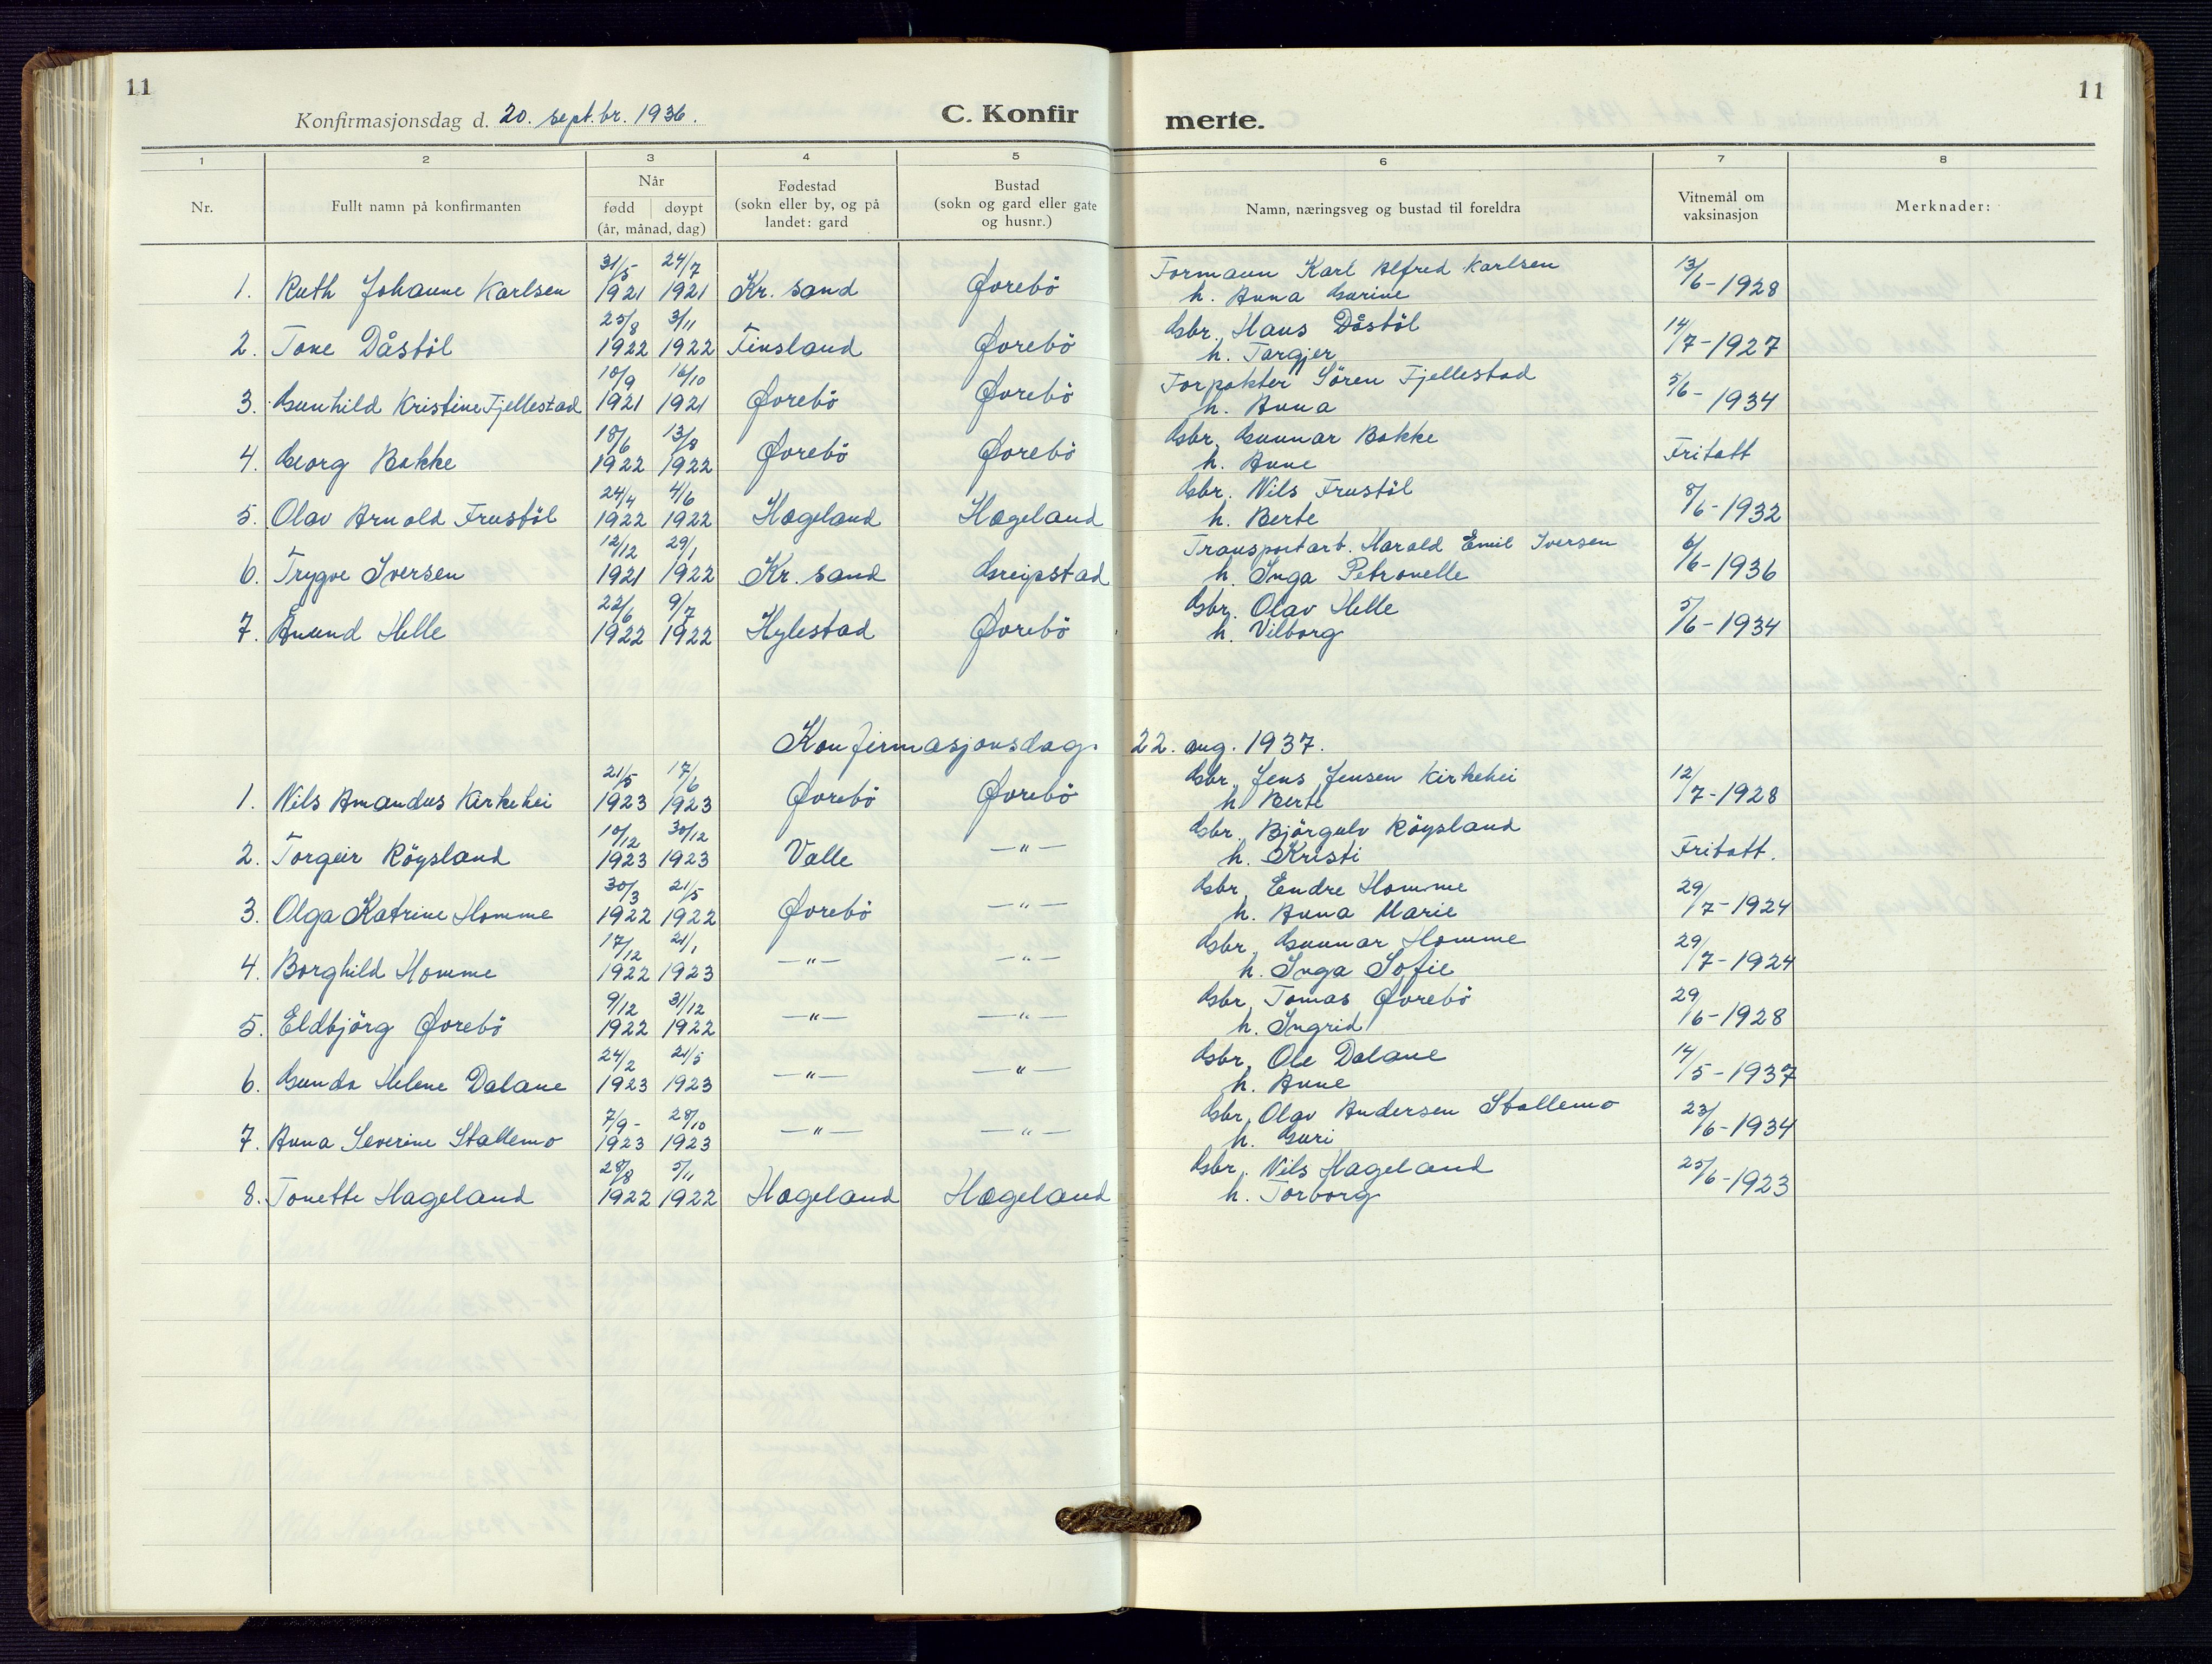 11
11
Konfirmasjonsdag d. 20. sept.br. 1936.
C. Konfir
merte.
1 2 3 4 5 6 7 8
Nr.
Fullt namn på konfirmanten
Når
født døypt
(år, månad, dag)
Fødestad
(sokn eller by, og på
landet: gard
Bustad
(sokn og gard eller gate
og husnr.)
Namn, næringsveg og bustad til foreldra
Vitnemål om
vaksinasjon
Merknader:
31/5 24/7 Formann Karl Alfred Karlsen 13/6-1928
1. Ruth Johanne Karlsen 1921 1921 Kr. sand Øvrebö h. Anna Gurine
25/8 3/11 Gbr. Hans Dåstöl 14/7-1927
2. Tone Dåstöl 1922 1922 Finsland Øvrebö h. Targjer
10/9 16/10 Forpakter Sören Fjellestad 5/6-1934
3. Gunhild Kristine Fjellestad 1921 1921 Øvrebö Øvrebö h. Anna
18/6 13/8 Gbr. Gunnar Bakke
4. Georg Bakke 1922 1922 Øvrebö Øvrebö h. Anne Fritatt
24/4 4/6 Gbr. Nils Frustöl 8/6-1932
5. Olav Arnold Frustöl 1922 1922 Hægeland Hægeland h. Berte
12/12 29/1 Transportarb. Harald Emil Iversen 6/6-1936
6. Trygve Iversen 1921 1922 Kr. sand Greipstad h. Inga Petronelle
22/6 9/7 Gbr. Olav Helle 5/6-1934
7. Ånund Helle 1922 1922 Hylestad Øvrebö h. Vilborg
Konfirmasjonsdag. 22. aug. 1937.
21/5 17/6 Gbr. Jens Jensen Kirkehei 12/7-1928
1. Nils Amandus Kirkehei 1923 1923 Øvrebö Øvrebö h. Berte
10/12 30/12 Gbr. Björgulv Röysland
2. Torgeir Röysland 1923 1923 Valle —"— h. Kristi Fritatt.
30/3 21/5 Gbr. Endre Homme 29/7-1924
3. Olga Katrine Homme 1922 1922 Øvrebö —"— h. Anna Marie
17/12 21/1 Gbr. Gunnar Homme 29/7-1924
4. Borghild Homme 1922 1923 —"— —"— h. Inga Sofie
9/12 31/12 Gbr. Tomas Øvrebö 29/6-1928
5. Eldbjörg Øvrebö 1922 1922 —"— —"— h. Ingrid
24/2 21/5 Gbr. Ole Dalane 14/5-1937
6. Gunda Helene Dalane 1923 1923 —"— —"— h. Anne
7/9- 28/10 Gbr. Olav Andersen Stallemo 23/6-1934
7. Anna Severine Stallemo 1923 1923 —"— —"— h. Guri
28/8 5/11 Gbr. Nils Hageland 25/6-1923
8. Tonette Hageland 1922 1922 Hægeland Hægeland h. Torborg